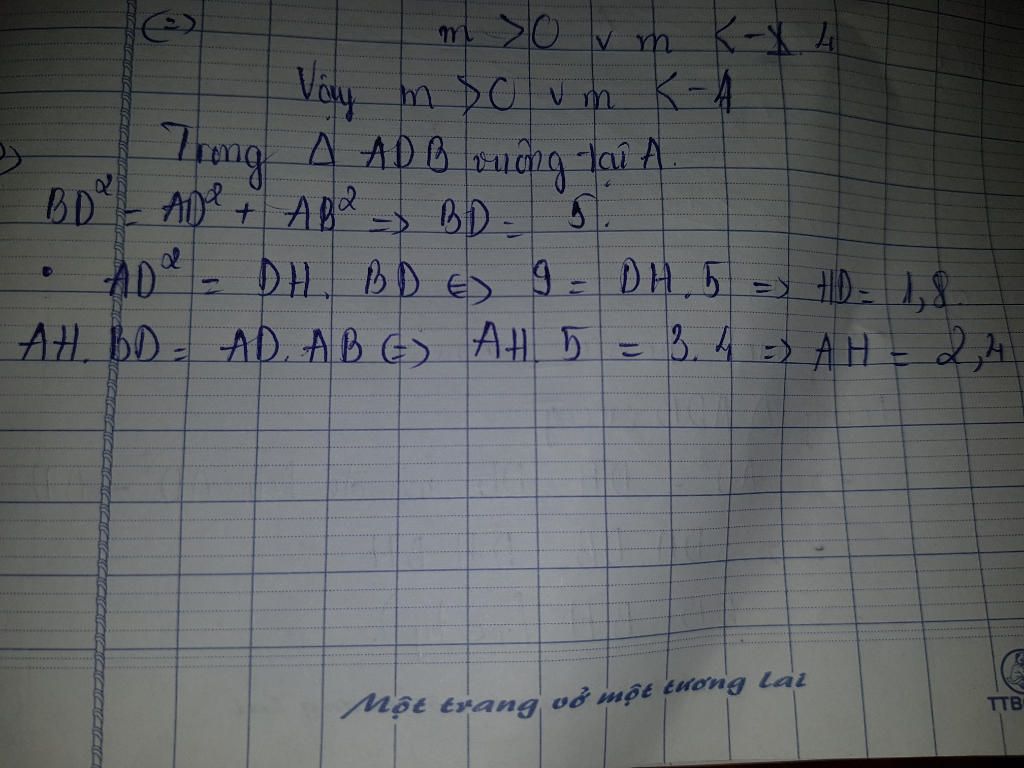 (=) m > 0 v m < -4
Vậy m > 0 v m < -4
Trong Δ ADB vuông tại A.
BD² = AD² + AB² => BD = 5.
• AD² = DH. BD <=> 9 = DH. 5 => HD = 1,8.
AH. BD = AD. AB <=> AH. 5 = 3. 4 => AH = 2,4
Một trang vở một tương lai